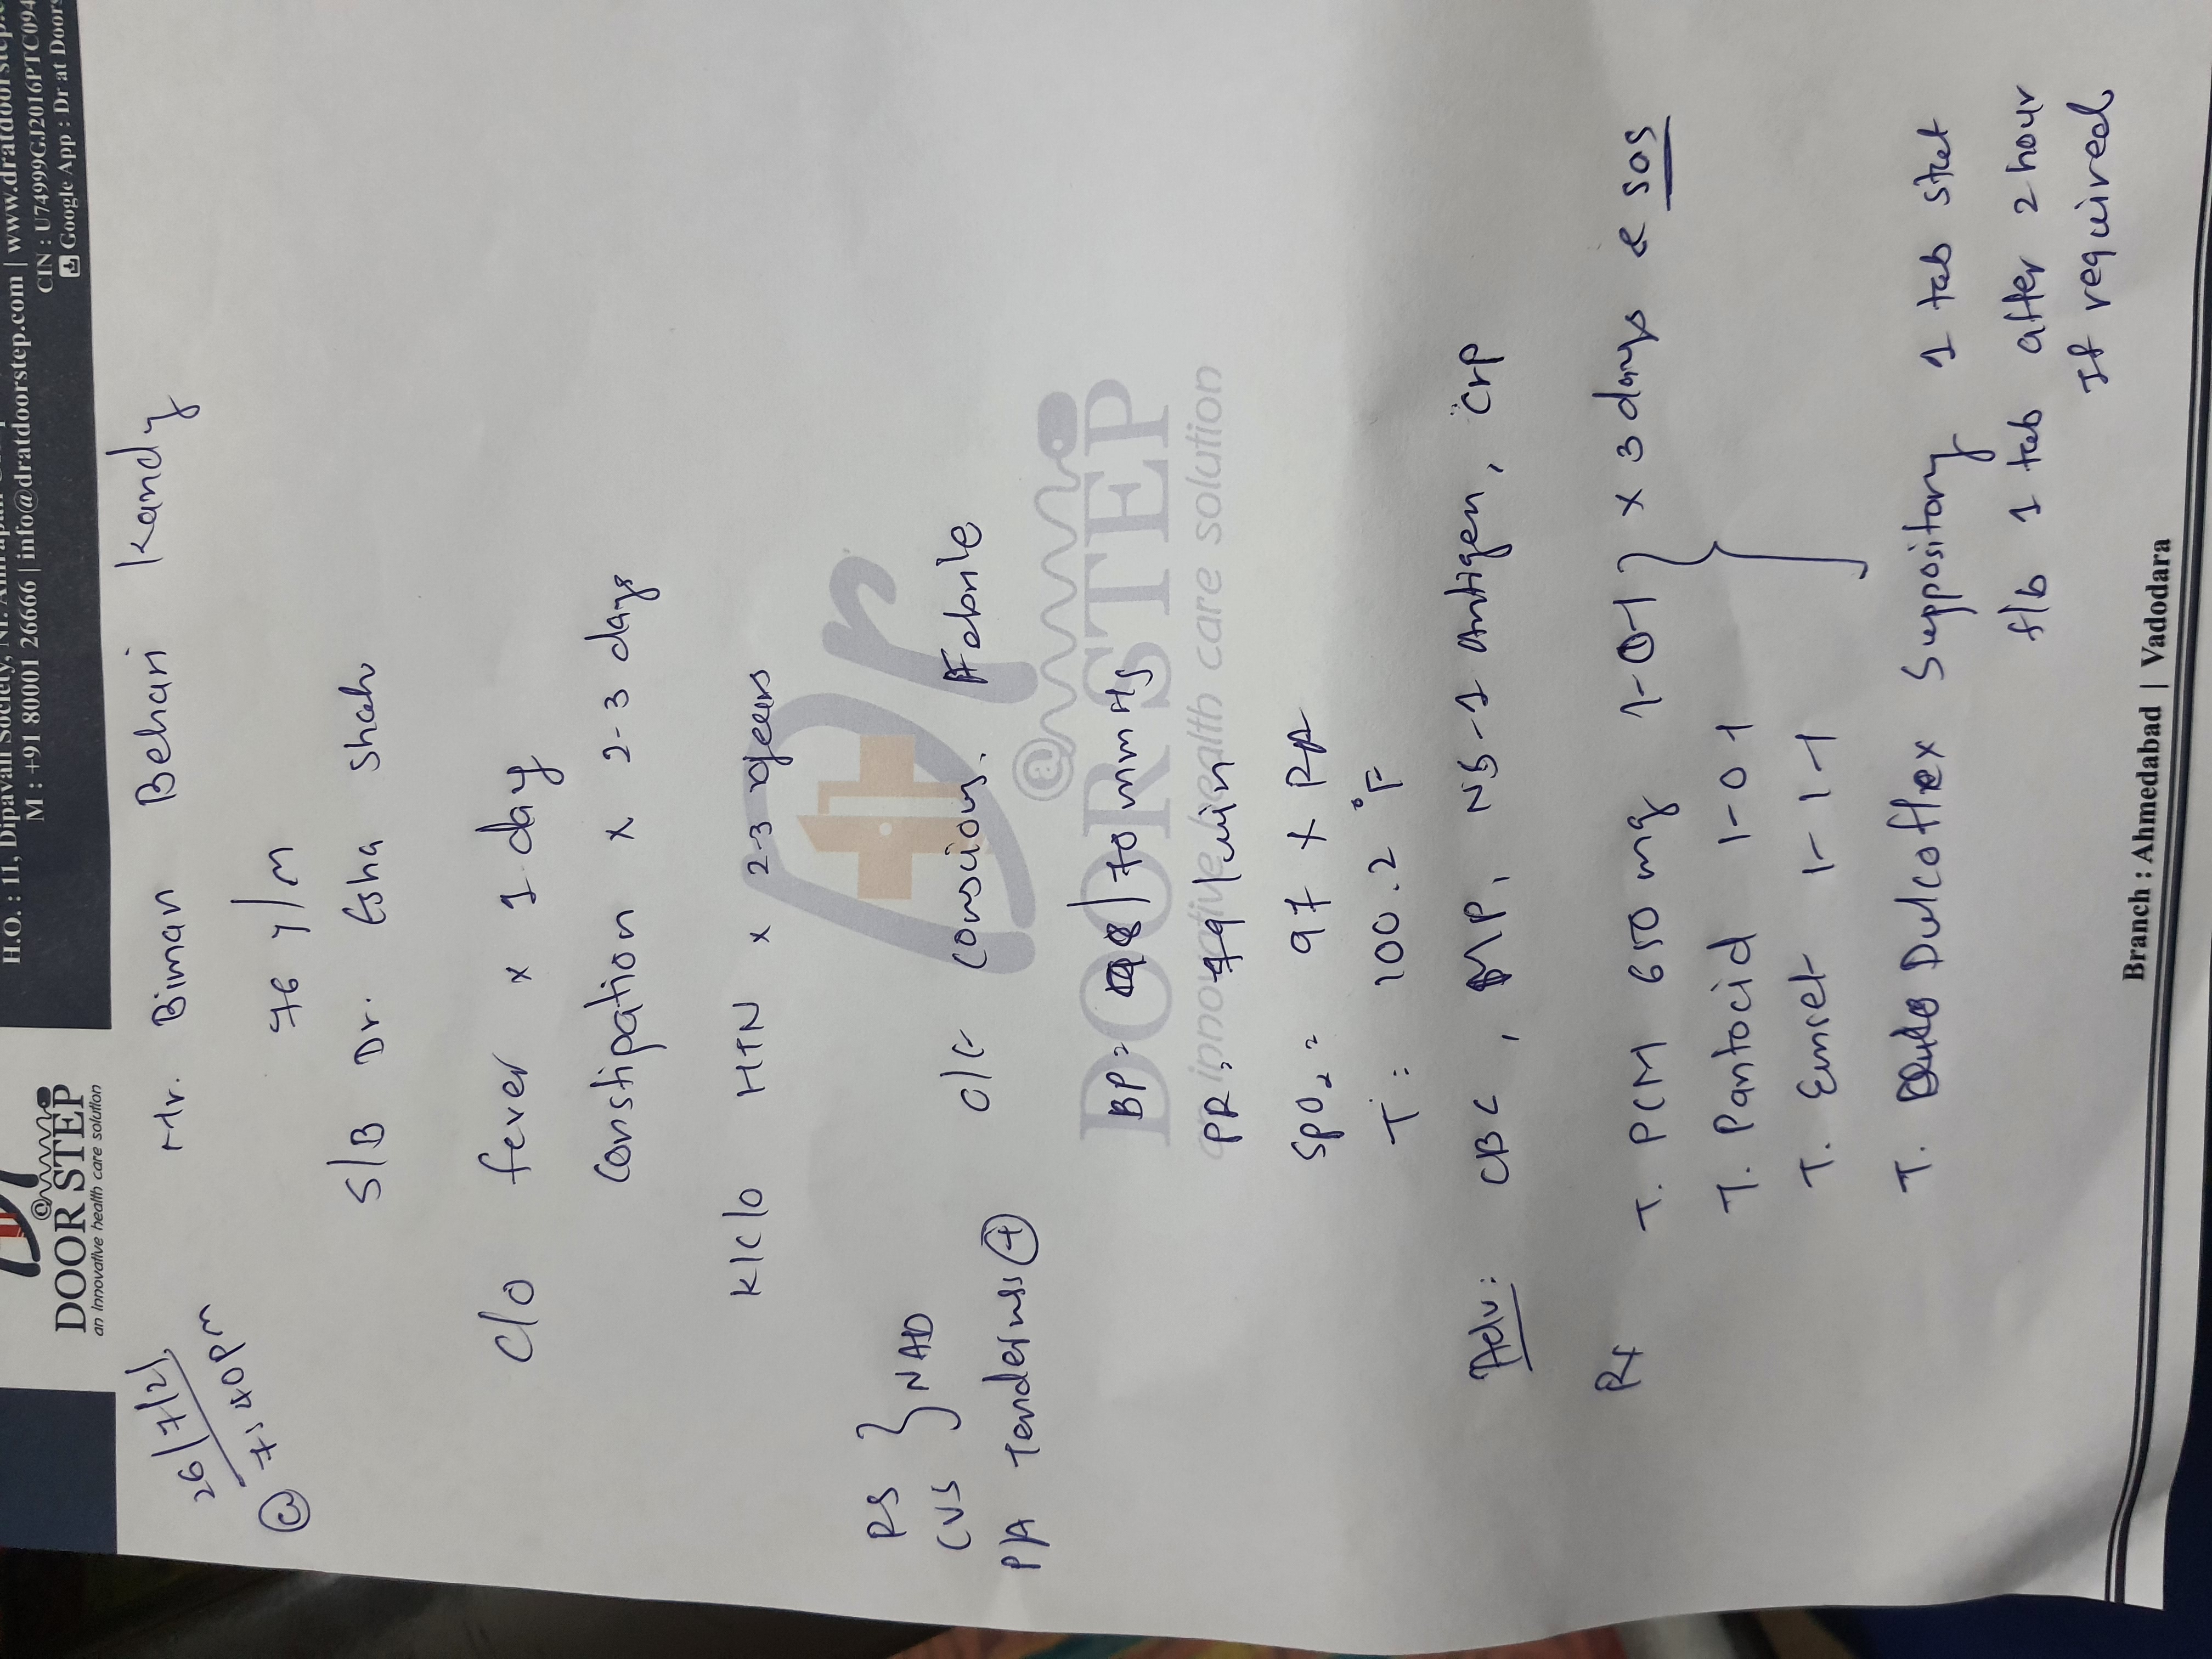 DOOR STEP
an innovative health care solution
H.O. : 11, Dipavali Society, Nr.
M : +91 80001 26666 | info@dratdoorstep.com | www.dratdoorstep.
CIN : U74999GJ2016PTC094
Google App : Dr at Doors
26/7/21.
@ 7:40pm
Mr. Biman Behari Kandy
76 y/M
S/B Dr. Esha Shah
C/o fever x 1 day
Constipation x 2-3 days
K/C/o HTN x 2-3 years
RS
CVS } NAD
P/A Tenderness +
O/E Conscious. Febrile
Dr
@
DOOR STEP
an innovative health care solution
BP = 98/70 mmHg
PR = 79/min
SpO2 = 97 % RA
T: 100.2 °F
Adv: CBC, MP, NS-1 Antigen, Crp
Rx
T. PCM 650 mg 1-0-1 } x 3 days & SOS
T. Pantocid 1-0-1
T. Emset 1-1-1
T. Dulcoflex Suppository 1 tab stat
f/b 1 tab after 2 hour
If required
Branch : Ahmedabad | Vadodara